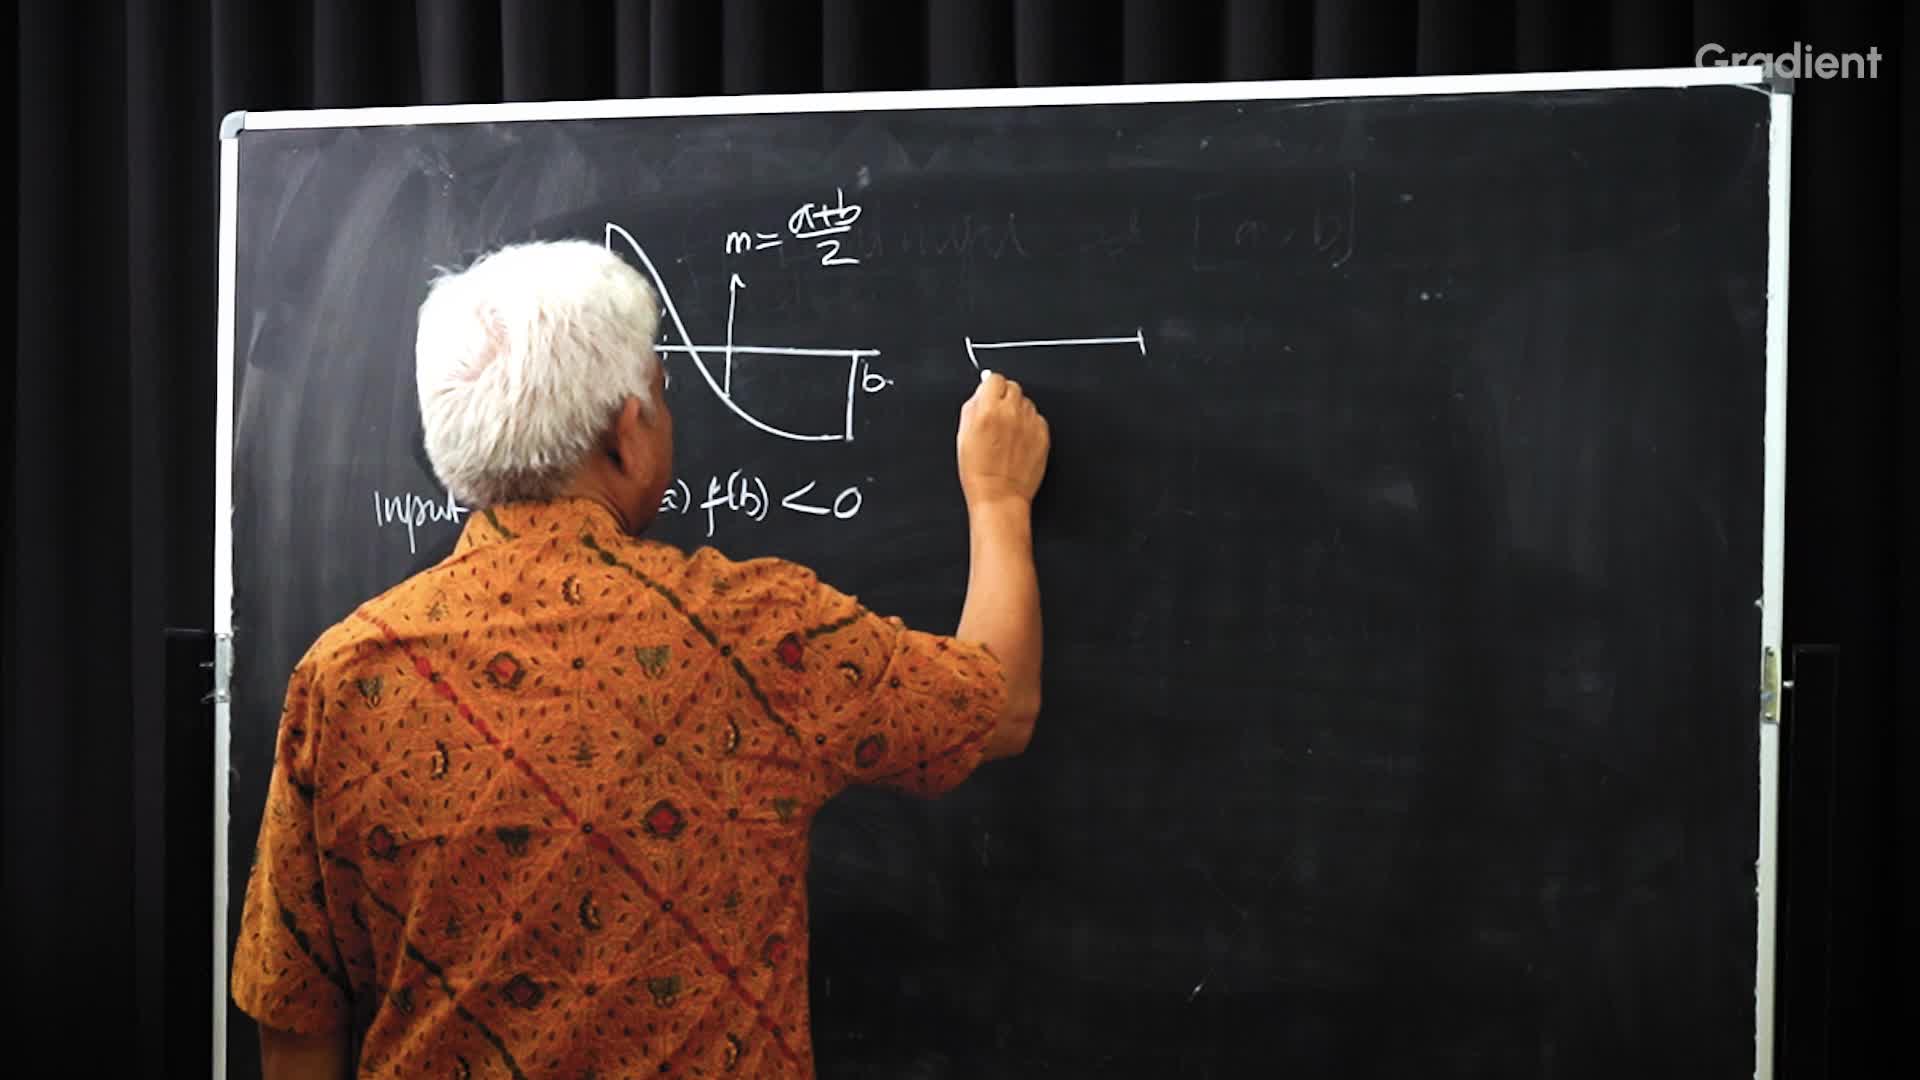 Gradient
m = a+b/2
[a, b]
b
Input a) f(b) < 0